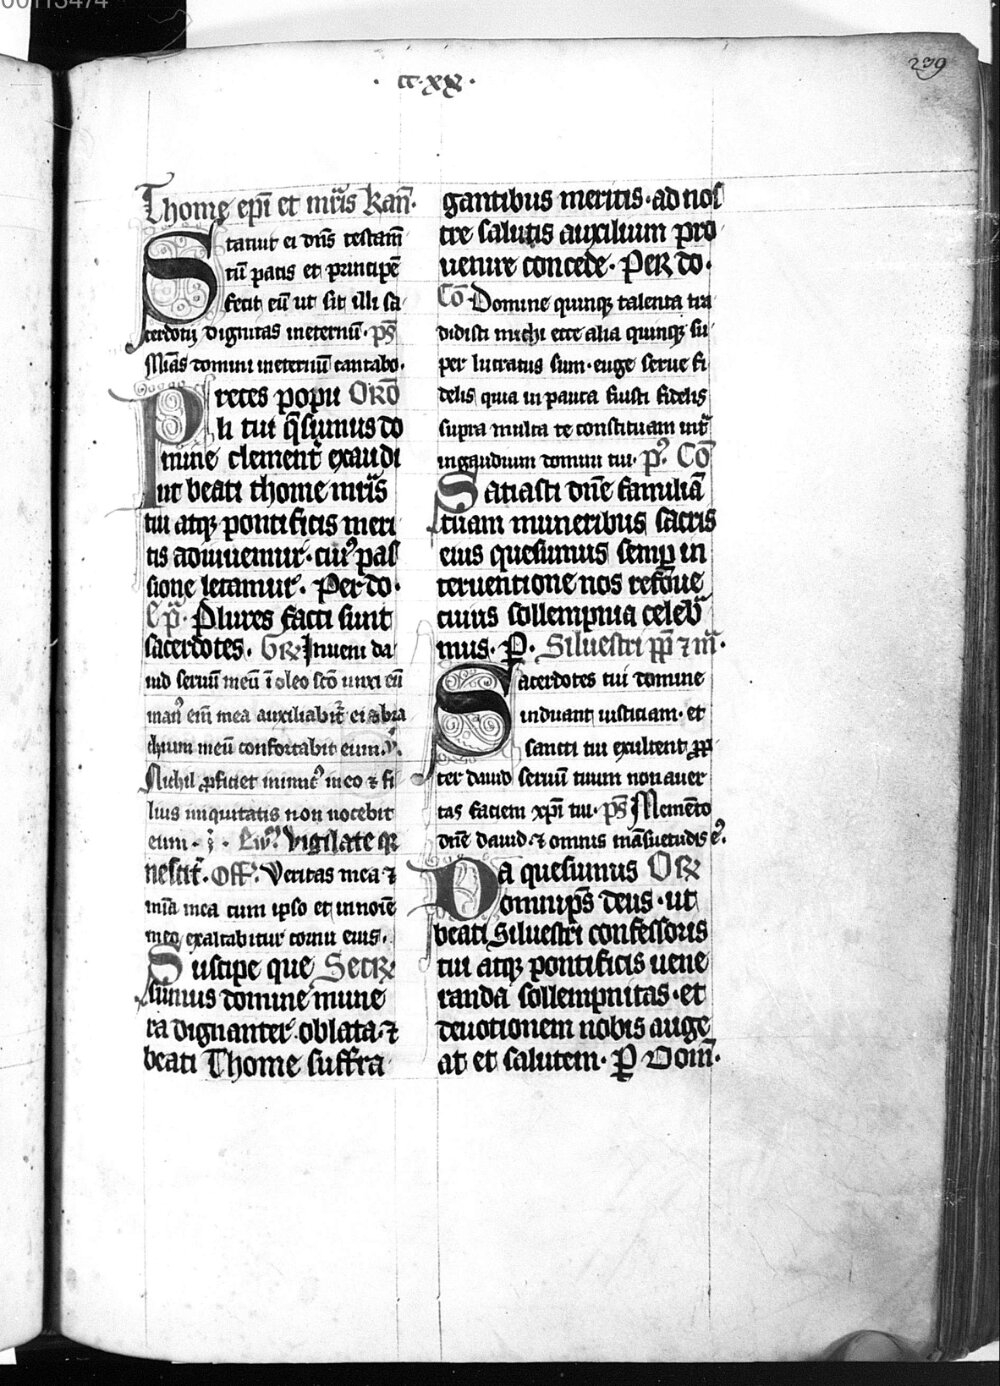 00113474
239
· cc·xx ·
Thome ep̄i et mr̄is kan̄·
Statuit ei dn̄s testam̄
tū pacis et principē
fecit eū ut sit illi sa
cerdotij dignitas ineternū· ps̄
Mīas domini ineternū cantabo·
Preces popu Orō
li tui q̄sumus do
mine clement̄ exaudi
ut beati thome mr̄is
tui atqꝫ pontificis meri
tis adiuuemur· cuiꝰ pas
sione letamur· Per do·
Ep̄· Plures facti sunt
sacerdotes· Gr̄ Inueni da
uid seruū meū ī oleo scō unxi eū
manꝰ eī mea auxiliabit̄ ei ⁊ bra
chium meū confortabit eum· ꝟ·
Nichil ꝓficiet inimicꝰ in eo ⁊ fi
lius iniquitatis non nocebit
eum· Ew̄· Vigilate qꝛ
nescit̄· Off̄· Veritas mea ⁊
mīa mea cum ipso et in noīe
meo exaltabitur cornu eius·
Suscipe que Secr̄
sumus domine mune
ra dignanter oblata· ⁊
beati Thome suffra
gantibus meritis· ad nos
tre salutis auxilium pro
uenire concede· Per do·
Cō Domine quinqꝫ talenta tra
didisti michi ecce alia quinqꝫ su
per lucratus sum· euge serue fi
delis quia in pauca fuisti fidelis
supra multa te constituam int̄
in gaudium domini tui· pꝰ Cō
Saciasti dn̄e familiā
tuam muneribus sacris
eius quesumus semꝑ in
teruentione nos refoue
cuius sollempnia celeb̄
mus· P̱· Siluestri pp̄ ⁊ m̄·
Sacerdotes tui domine
induant iusticiam· et
sancti tui exultent ꝓp
ter dauid seruū tuum non auer
tas faciem xp̄i tui· ps̄ Memēto
dn̄e dauid· ⁊ omnis māsuetudīs eꝰ·
Da quesumus Or̄
omnip̄s deus· ut
beati Siluestri confessoris
tui atqꝫ pontificis uene
randa sollempnitas· et
deuotionem nobis auge
at et salutem· P̱ Dom̄·